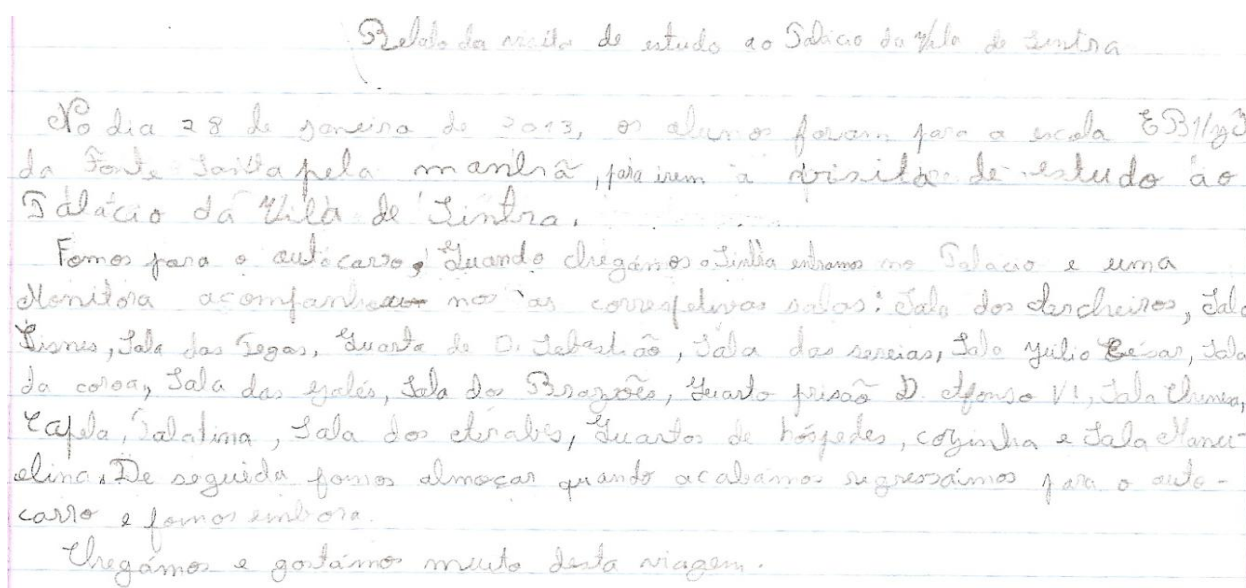 Relato da visita de estudo ao Palácio da Vila de Sintra
No dia 28 de janeiro de 2013, os alunos foram para a escola EB1/JI
da Fonte Santa pela manhã, para irem à visita de estudo ao
Palácio da Vila de Sintra.
Fomos para o autocarro, Quando chegámos a Sintra entramos no Palacio e uma
Monitora acompanhou nos às correspetivas salas: Sala dos Archeiros, Sala
Sisnes, Sala das Pegas, Quarto de D. Sebastião, Sala das sereias, Sala Júlio César, Sala
da coroa, Sala das galés, Sala dos Brazões, Quarto prisão D. Afonso VI, Sala Chinesa,
Capela, Palatina, Sala dos Árabes, Quartos de hóspedes, cozinha e Sala Manu-
elina. De seguida fomos almoçar quando acabámos regressámos para o auto-
carro e fomos embora.
Chegámos e gostámos muito desta viagem.